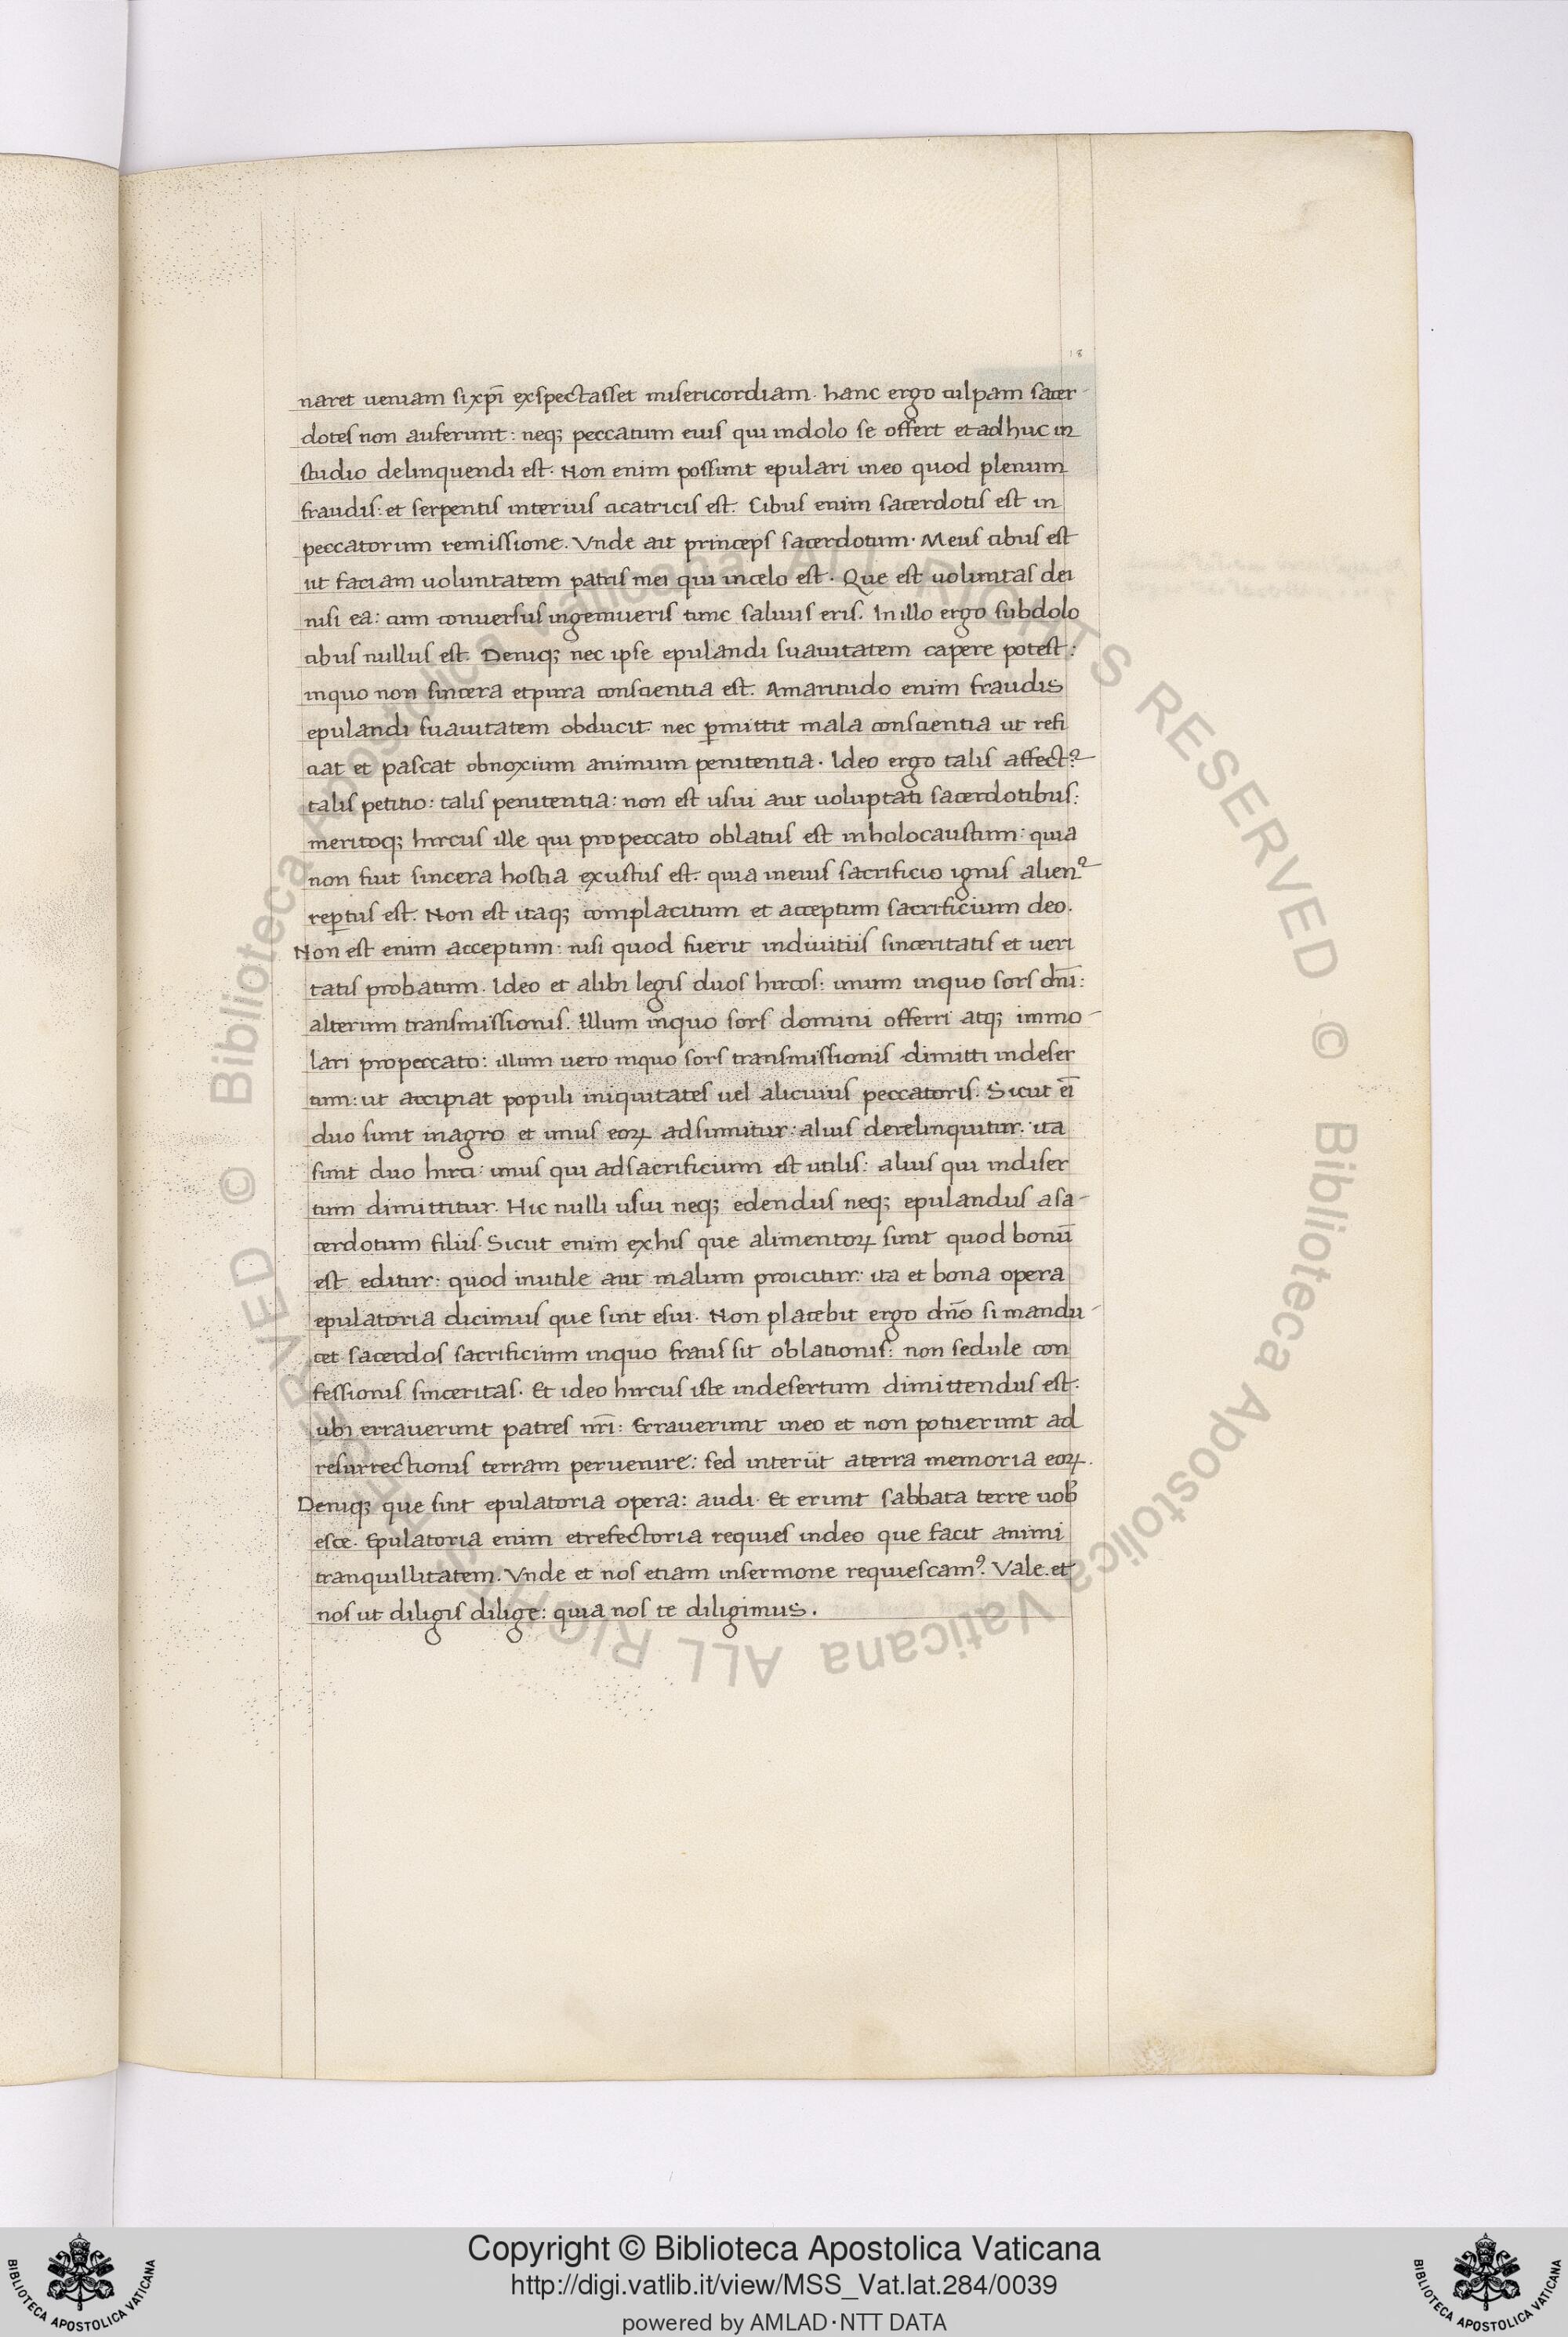 18
naret ueniam si xp̄i exspectasset misericordiam. hanc ergo culpam sacer-
dotes non auferunt: neq; peccatum eius qui indolo se offert et adhuc in
studio delinquendi est. Non enim possunt epulari ineo quod plenum
fraudis: et serpentis interius cicatricis est. Cibus enim sacerdotis est in
peccatorum remissione. Vnde ait princeps sacerdotum. Meus cibus est
ut faciam uoluntatem patris mei qui incelo est. Que est uoluntas dei
nisi ea: cum conuersus ingemueris tunc saluus eris. In illo ergo subdolo
cibus nullus est. Deniq; nec ipse epulandi suauitatem capere potest:
inquo non sincera etpura conscientia est. Amaritudo enim fraudis
epulandi suauitatem obducit. nec ꝑmittit mala conscientia ut refi
ciat et pascat obnoxium animum penitentia. Ideo ergo talis affectꝰ
talis petitio: talis penitentia: non est usui aut uoluptati sacerdotibus:
meritoq; hircus ille qui propeccato oblatus est inholocaustum: quia
non fuit sincera hostia exustus est. quia ineius sacrificio ignis alienꝰ
reꝑtus est. Non est itaq; complacitum et acceptum sacrificium deo.
Non est enim acceptum: nisi quod fuerit indiuitiis sinceritatis et ueri
tatis probatum. Ideo et alibi legis duos hircos: unum inquo sors dn̄i:
alterum transmissionis. Illum inquo sors domini offerri atq; immo-
lari propeccato: illum uero inquo sors transmissionis dimitti indeser
tum: ut accipiat populi iniquitates uel alicuius peccatoris. Sicut ei̅
duo sunt inagro et unus eoꝝ adsumitur: alius derelinquitur. ita
sunt duo hirci: unus qui adsacrificium est utilis: alius qui indiser
tum dimittitur. Hic nulli usui neq; edendus neq; epulandus a sa-
cerdotum filiis. Sicut enim exhis que alimentoꝝ sunt quod bonū
est editur: quod inutile aut malum proicitur: ita et bona opera
epulatoria dicimus que sint esui. Non placebit ergo dn̄o si mandu-
cet sacerdos sacrificium inquo fraus sit oblationis: non sedule con
fessionis sinceritas. Et ideo hircus iste indesertum dimittendus est.
ubi errauerunt patres nr̄i: Errauerunt ineo et non potuerunt ad
resurrectionis terram peruenire: sed interiit aterra memoria eoꝝ.
Deniq; que sint epulatoria opera: audi. Et erunt sabbata terre uob̄
esce. Epulatoria enim etrefectoria requies indeo que facit animi
tranquillitatem. Vnde et nos etiam insermone requiescamꝰ. Vale. et
nos ut diligis dilige: quia nos te diligimus.
© Biblioteca Apostolica Vaticana ALL RIGHTS RESERVED © Biblioteca Apostolica Vaticana ALL RIGHTS RESERVED
Copyright © Biblioteca Apostolica Vaticana
http://digi.vatlib.it/view/MSS_Vat.lat.284/0039
powered by AMLAD·NTT DATA
BIBLIOTECA APOSTOLICA VATICANA
BIBLIOTECA APOSTOLICA VATICANA